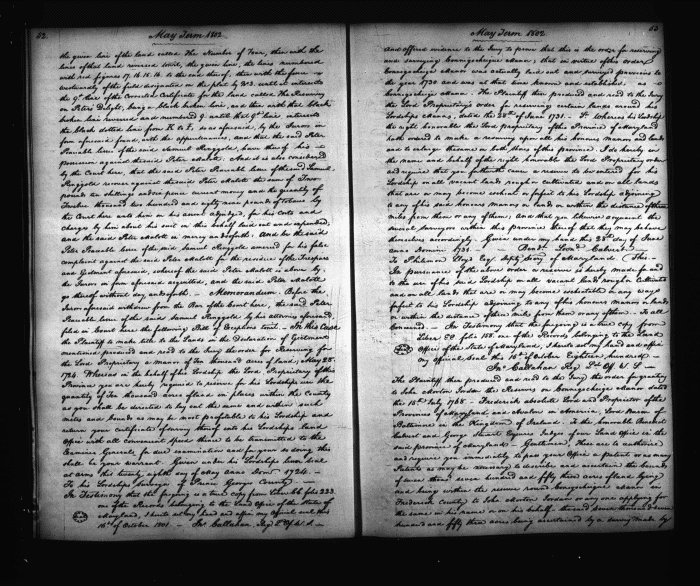 52.
May Term 1802
the given line of the land called The Number of Four, then with the
lines of that land reversed to wit, the given line, the lines numbered
with red figures 17. 16. 15. 14. to the end thereof, then with the fence
of the field designated on the plat by No 3. until it intersects
the 9th line of the Corrected Certificate for the land called The Resurvey
on Peter's Delight, being a black broken line, and then with that black
broken line reversed and numbered 9. until that 9th line intersects
the black dotted line from K to F. as aforesaid, by the Jurors in
form aforesaid found, with the appurtenances, and that the said Peter
Ranable lessee of the said Samuel Ringgold, have thereof his
possession against the said Peter Malott. And it is also considered
by the Court here, that the said Peter Ranable lessee of the said Samuel
Ringgold recover against the said Peter Malott the sum of Two
Pounds ten shillings and two pence current money and the quantity of
Twelve thousand two hundred and eighty nine pounds of tobacco by
the Court here unto him on his assent adjudged, for his costs and
charges by him about his suit in this behalf laid out and expended,
and the said Peter Malott in mercy and so forth. And the said
Peter Ranable lessee of the said Samuel Ringgold amerced for his false
complaint against the said Peter Malott for the residue of the Trespass
and Ejectment aforesaid, whereof the said Peter Malott is above by
the Jurors in form aforesaid acquitted, and the said Peter Malott
go thereof without day, and so forth. Memorandum. Before the
Jurors aforesaid withdrew from the Bar of the Court here, the said Peter
Ranable lessee of the said Samuel Ringgold by his attornies aforesaid,
filed in Court here the following Bill of Exceptions to wit. In this Case
the Plaintiff to make title to the Lands in the Declaration of Ejectment
mentioned produced and read to the Jury the order for Reserving for
the Lord Proprietary a manor of Ten thousand acres of land, May 28.
1724. Whereas in the behalf of his Lordship the Lord Proprietary of this
Province you are hereby required to reserve for his Lordships use the
quantity of Ten thousand acres of land in places within the County
as you shall be directed to lay out the same and within such
miles and bounds as may be most profitable to his Lordship and
return your certificate of survey thereof into his Lordships land
Office with all convenient speed there to be transmitted to the
Examiner General for due examination and for your so doing this
shall be your warrant. Given under his Lordships lesser seal
at arms this twenty eighth of May Anno Dom 1724.
To his Lordships surveyor of Prince Georges County
In Testimony that the foregoing is a true copy from Liber folio 223.
one of the Records belonging to the Land Office of the State of
Maryland, I hereto set my hand and affix my official seal this
16th of October 1801. Jno Callahan, Reg. L. Of. W. S.
53
May Term 1802
And offered evidence to the Jury to prove that this is the order for reserving
and surveying Conigocheigue Manor; that in virtue of this order
Conigocheigue Manor was actually laid out and surveyed previous to
the year 1731 and was at that time known and established, as
Conigocheigue Manor. The Plaintiff then produced and read to the Jury
the Lord Proprietary's order for reserving certain lands around his
Lordships Manors, dated the 28th of June 1731. Whereas his Lordship
the right honorable the Lord proprietary of the Province of Maryland
hath ordered to make a resurvey upon all his honors, Manors and lands
and to enlarge the same on both sides of this province. I do hereby in
the name and behalf of the right honorable the Lord Proprietary order
and require that you forthwith cause a reserve to be entered for his
Lordship on all vacant lands rough or cultivated and on all lands
that are or may become escheat or forfeit to his Lordship adjoining
to any of his said honors manors or lands or within the distance of three
miles from them or any of them, and that you likewise acquaint the
several surveyors within this province thereof that they may behave
themselves accordingly. Given under my hand this 28th day of June
Anno Domini 1731. Benedt Leod Calvert.
To Philemon Lloyd Esqr depty Secry of Maryland. This
In pursuance of the above order a reserve is hereby made for and
to the use of his said Lordship on all vacant lands rough or Cultivate
and on all lands that are or may become escheatable or any ways
forfeit to his Lordship adjoining to any of his honors manors or lands
or within the distance of three miles from them or any of them. To all
concerned. In Testimony that the foregoing is a true copy from
Liber CC folio 158. one of the Records belonging to the Land
Office of the State of Maryland, I hereto set my hand and affix
my official Seal this 16th of October Eighteen hundred
Jno Callahan Reg L. Off. W. S.
The Plaintiff then produced and read to the Jury the order for granting
to John Morton Jordan the Reserves on Conigocheigue Manor dated
the 15th July 1768. Frederick absolute Lord and Proprietor of the
Provinces of Maryland and Avalon in America, Lord Baron of
Baltimore in the Kingdom of Ireland. To the honorable Benedict
Calvert and George Steuart Esquires Judges of our Land Office in the
said province of Maryland. Gentlemen, These are to authorize
and require you immediately to pass your Office a patent or as many
Patents as may be necessary to describe and ascertain the bounds
of seven thous. seven hundred and fifty three acres of land lying
and being within the reserves of Conigocheigue Manor in
Frederick County to John Morton Jordan or any one applying for
the same in his name or on his behalf thousand seven
hundred and fifty three acres being ascertained by a survey made by